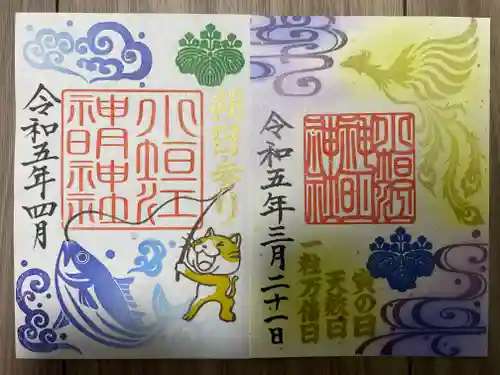 小垣江
神明
神社
寅の日
天赦日
一粒万倍日
令和五年三月二十一日
朔日参り
小垣江
神明神社
令和五年四月